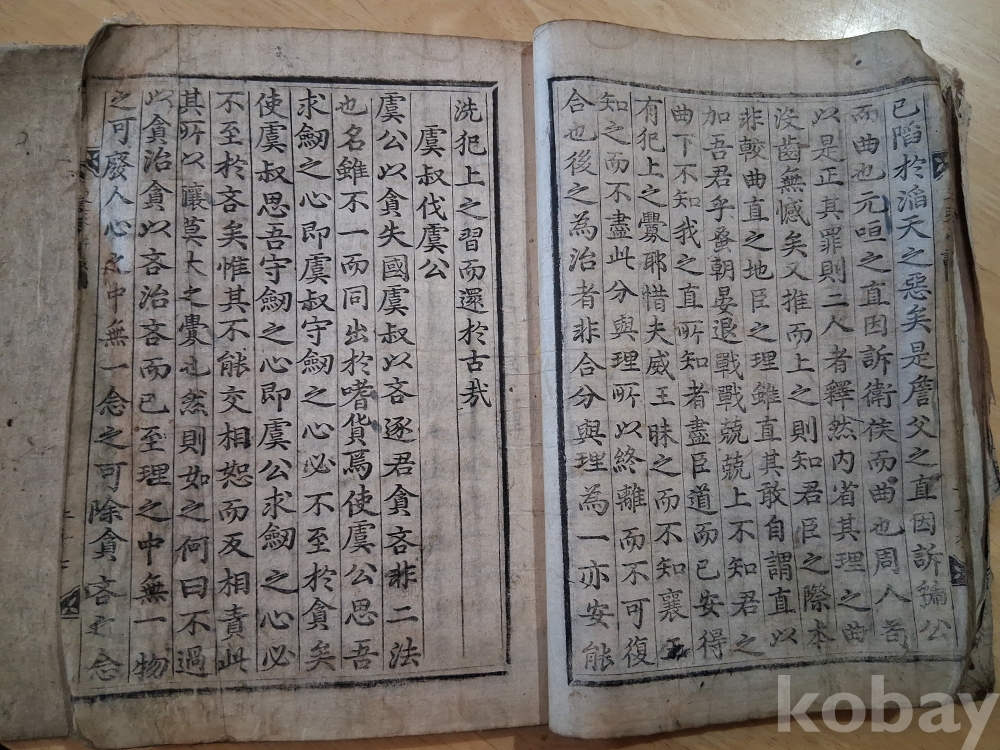 已陷於滔天之惡矣是詹父之直因訴虢公
而曲也元咺之直因訴衛侯而曲也周人苟
以是正其罪則二人者釋然內省其理之曲
沒齒無憾矣又推而上之則知君臣之際本
非較曲直之地臣之理雖直其敢自謂直以
加吾君乎蚤朝晏退戰戰兢兢上不知君之
曲下不知我之直所知者盡臣道而已安得
有犯上之釁耶惜夫威王昧之而不知襄王
知之而不盡此分與理所以終離而不可復
合也後之為治者非合分與理為一亦安能
洗犯上之習而還於古哉
虞叔伐虞公
虞公以貪失國虞叔以吝逐君貪吝非二法
也名雖不一而同出於嗜貨焉使虞公思吾
求劒之心即虞叔守劒之心必不至於貪矣
使虞叔思吾守劒之心即虞公求劒之心必
不至於吝矣惟其不能交相恕而反相責此
其所以釀莫大之釁也然則如之何曰不過
以貪治貪以吝治吝而已至理之中無一物
之可廢人心之中無一念之可除貪吝之念
kobay